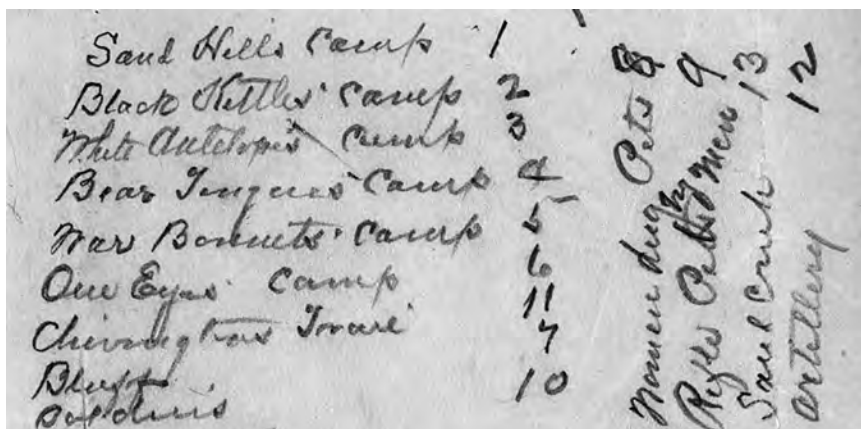 Sand Hills Camp 1
Black Kettles' Camp 2
White Antelope's Camp 3
Bear Tongues' Camp 4
War Bonnets' Camp 5
One Eyes' Camp 6
Chivingtons 11
7
Bluff 10
Women dug by Pits 8
Rifle Pitts Men 9
Sand Creek 13
Artillery 12